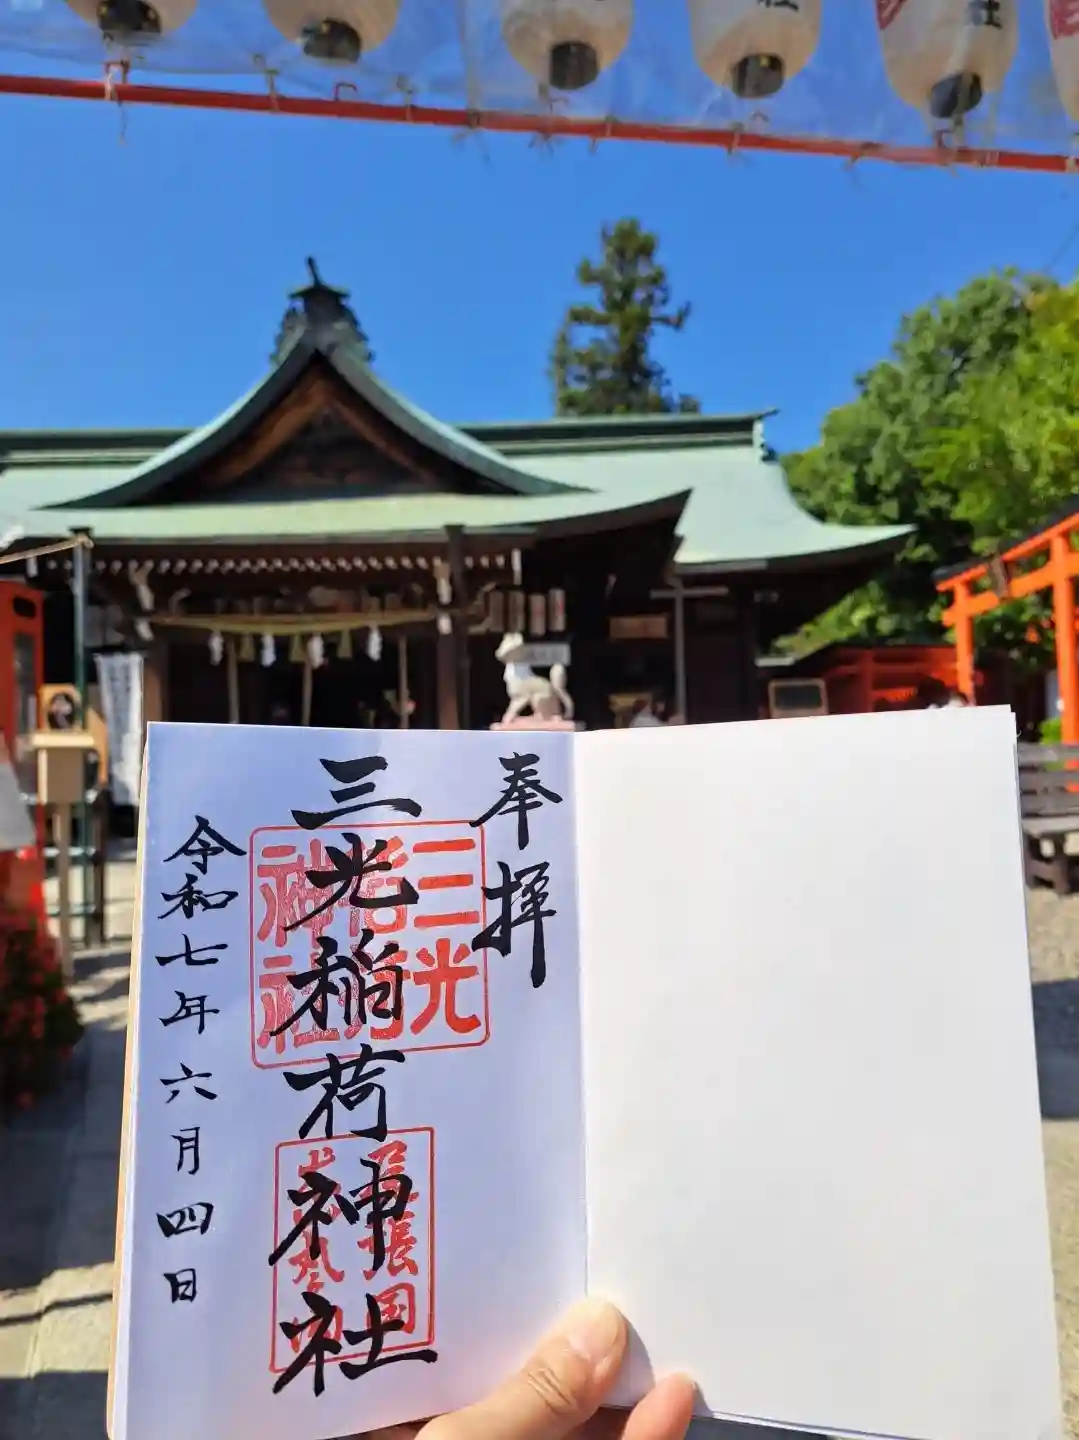 社
社
奉拝
三光稲荷神社
三光
稲荷
神社
尾張国
犬山丸之内
令和七年六月四日